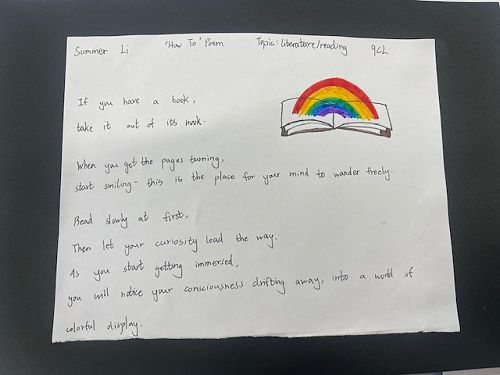 Summer Li 'How To' Poem Topic: literature/reading 9CL
If you have a book,
take it out of its nook.
When you get the pages turning,
start smiling- this is the place for your mind to wander freely.
Read slowly at first,
Then let your curiosity lead the way.
As you start getting immersed,
you will notice your consciousness drifting away, into a world of
colorful display.